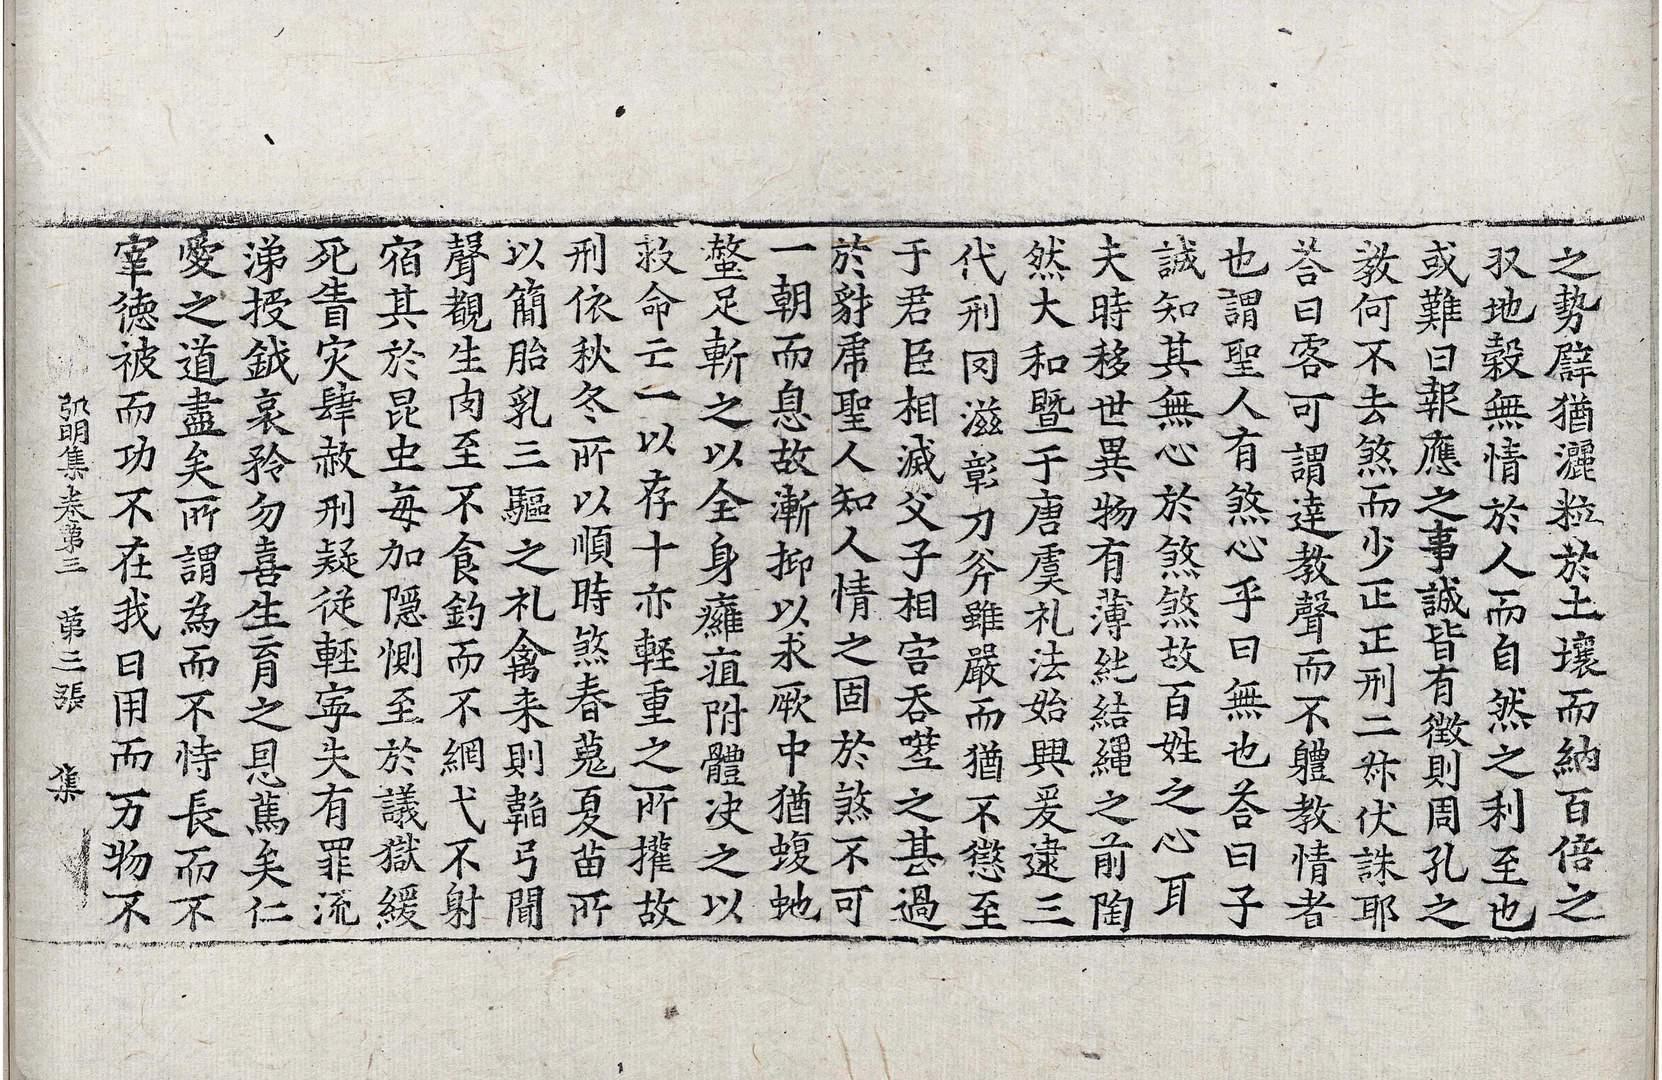 之勢辟猶灑粒於土壤而納百倍之
収地穀無情於人而自然之利至也
或難曰報應之事誠皆有徵則周孔之
教何不去煞而少正正刑二叔伏誅耶
荅曰客可謂達教聲而不軆教情者
也謂聖人有煞心乎曰無也荅曰子
誠知其無心於煞煞故百姓之心耳
夫時移世異物有薄純結繩之前陶
然大和暨于唐虞礼法始興爰逮三
代刑罔滋彰刀斧雖嚴而猶不懲至
于君臣相滅父子相害吞噬之甚過
於豺虎聖人知人情之固於煞不可
一朝而息故漸抑以求厥中猶蝮虵
螫足斬之以全身癰疽附體决之以
救命亡一以存十亦輕重之所擢故
刑依秋冬所以順時煞春蒐夏苗所
以簡胎乳三驅之礼禽来則韜弓聞
聲覩生肉至不食釣而不網弋不射
宿其於昆虫每加隱惻至於議獄緩
死眚灾肆赦刑疑從輕寧失有罪流
涕授鉞哀矜勿喜生育之恩篤矣仁
愛之道盡矣所謂為而不恃長而不
宰德被而功不在我日用而万物不
弘明集卷第三　第三張　集